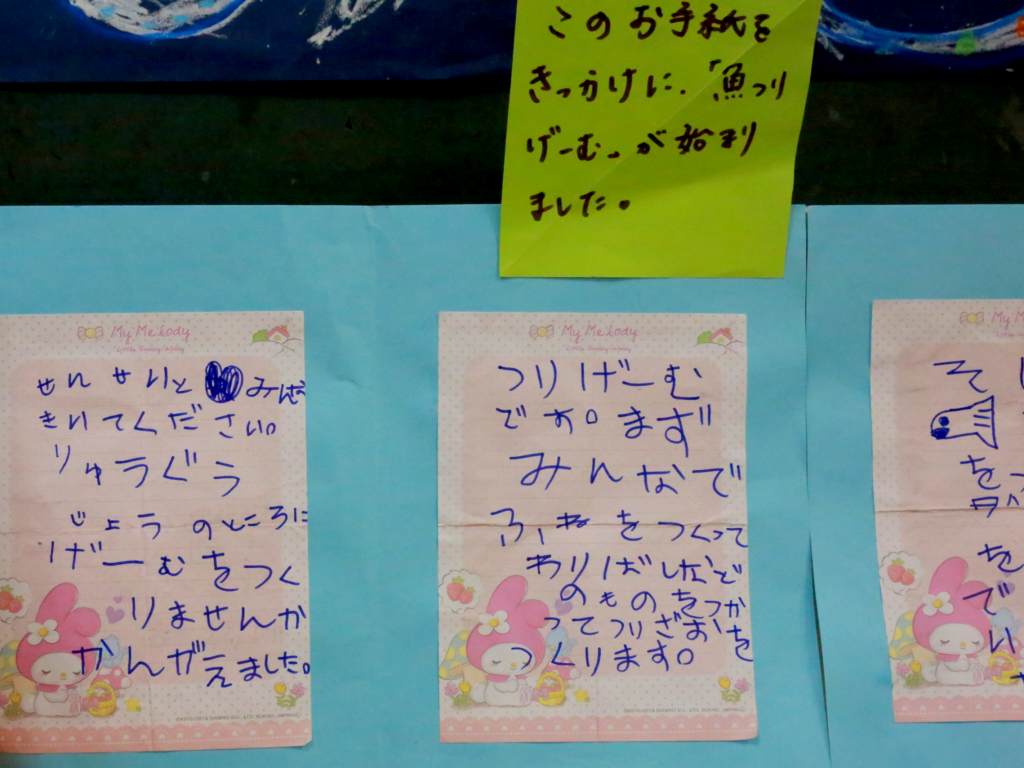 このお手紙を
きっかけに、「魚つり
げーむ」が始まり
ました。
My Melody
せんせいと みんな
きいてください。
りゅうぐう
じょうのところに
げーむをつく
りませんか
かんがえました。
My Melody
つりげーむ
です。まず
みんなで
ふねをつくって
わりばしなど
のものをつか
ってつりざおを
つくります。
そ
を
を
で
い